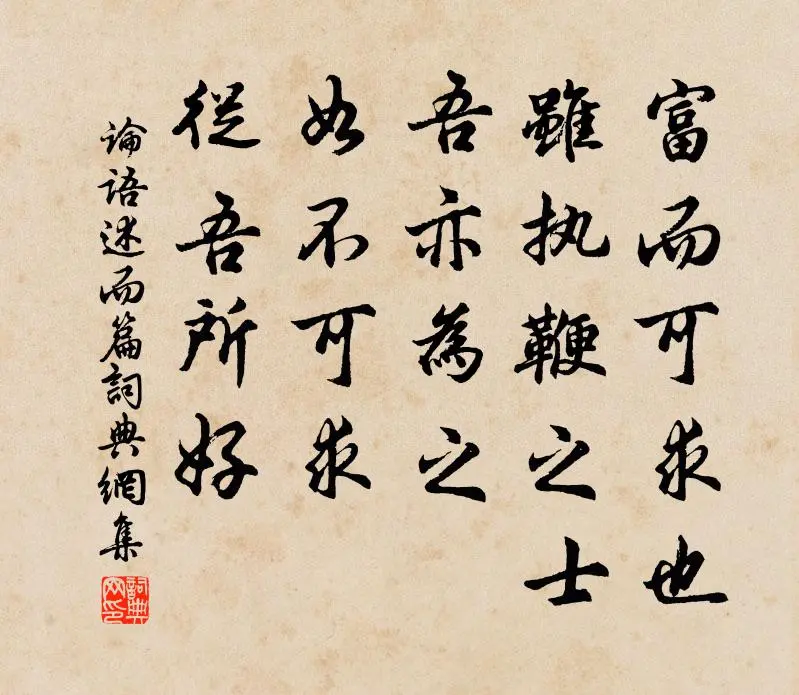 富而可求也
雖执鞭之士
吾亦為之
如不可求
從吾所好
論語述而篇詞典網集
詞典網印